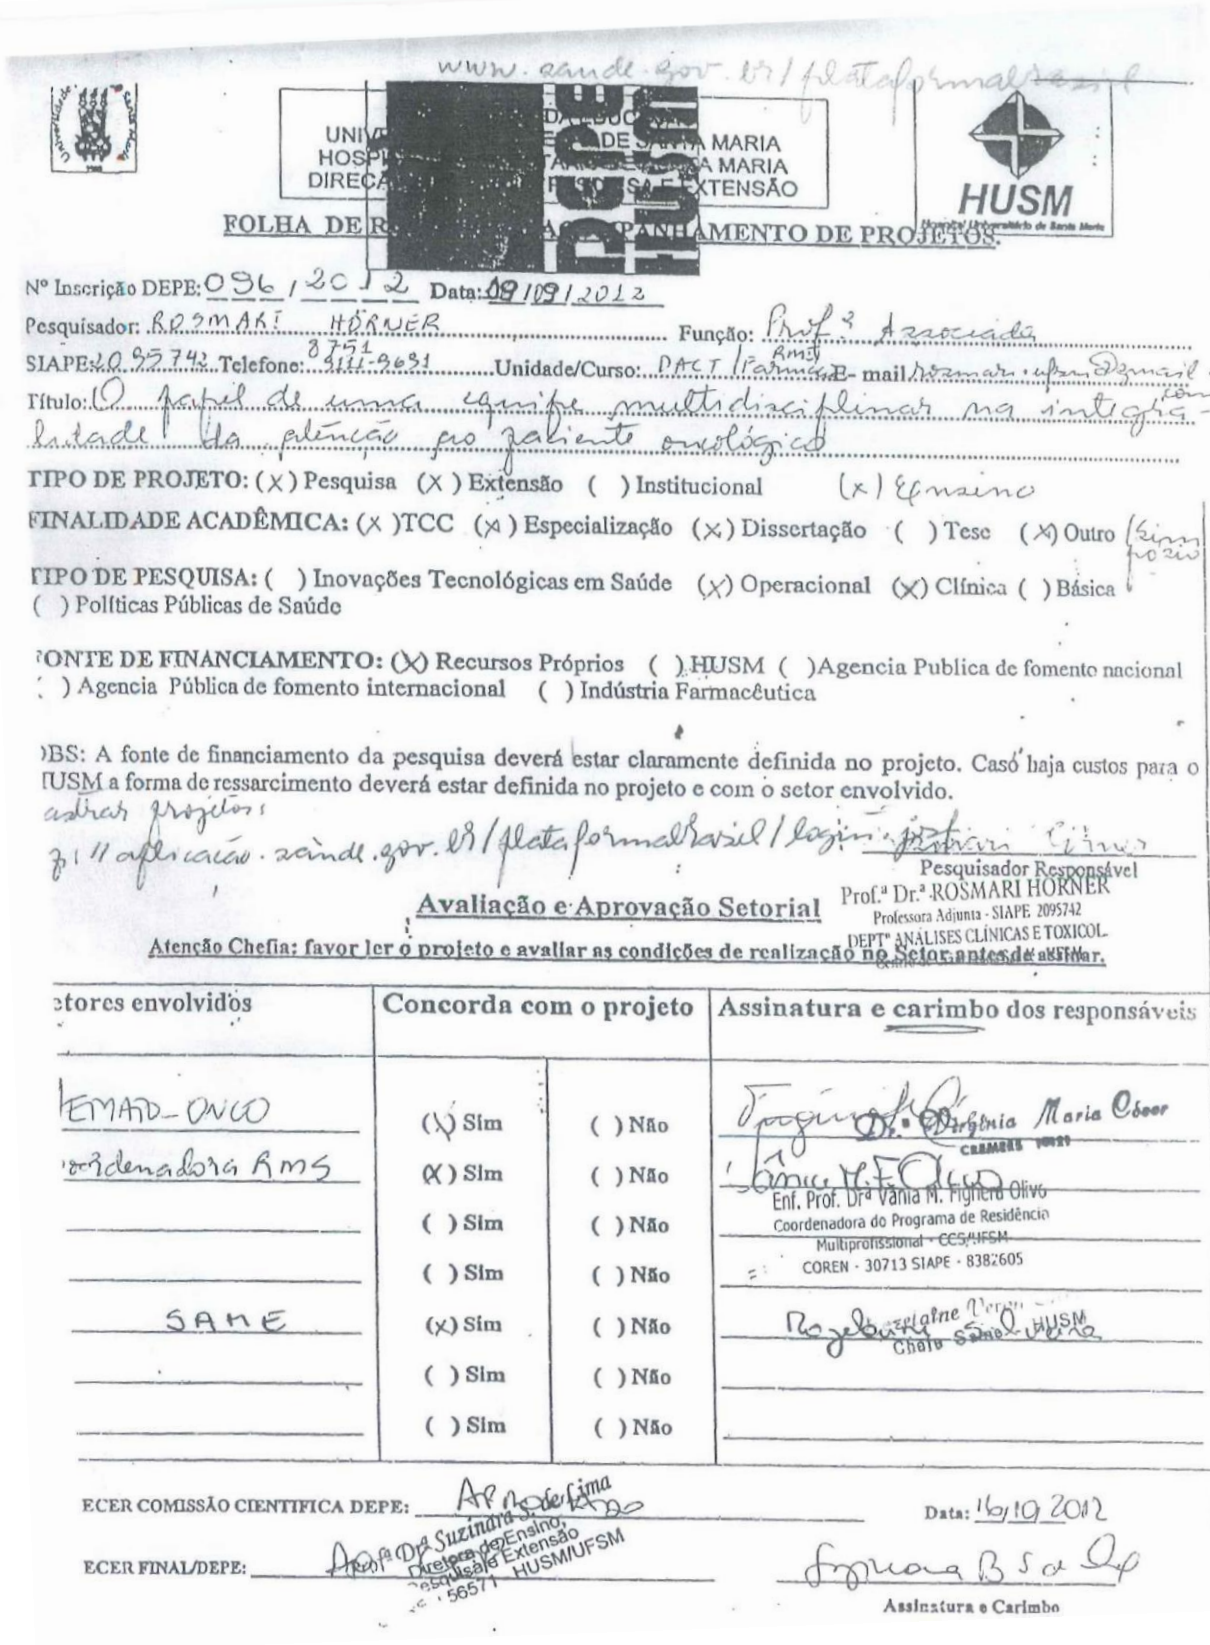 www.saude.gov.br/plataformabrasil
DA EDUCAÇÃO
DE SANTA MARIA
A MARIA
EXTENSÃO
HUSM
Hospital Universitário de Santa Maria
FOLHA DE R ACOMPANHAMENTO DE PROJETOS.
Nº Inscrição DEPE: 096 / 2012 Data: 09/09/2012
Pesquisador: ROSMARI HÖRNER Função: Profª Associada
8751
SIAPE: 2095742 Telefone: 9111-9691 Unidade/Curso: DACT /Farmác RMS E- mail rosmari.ufsm@gmail.com
Título: O papel de uma equipe multidisciplinar na integra-
lidade da atenção ao paciente oncológico
TIPO DE PROJETO: (X) Pesquisa (X) Extensão ( ) Institucional (x) Ensino
FINALIDADE ACADÊMICA: (X )TCC (x) Especialização (x) Dissertação ( ) Tese (X) Outro (Simpózio
TIPO DE PESQUISA: ( ) Inovações Tecnológicas em Saúde (X) Operacional (X) Clínica ( ) Básica
( ) Políticas Públicas de Saúde
FONTE DE FINANCIAMENTO: (X) Recursos Próprios ( ) HUSM ( )Agencia Publica de fomento nacional
( ) Agencia Pública de fomento internacional ( ) Indústria Farmacêutica
OBS: A fonte de financiamento da pesquisa deverá estar claramente definida no projeto. Caso haja custos para o
HUSM a forma de ressarcimento deverá estar definida no projeto e com o setor envolvido.
projetos:
//aplicacao.saude.gov.br/plataformabrasil/login.jsf
Pesquisador Responsável
Prof.ª Dr.ª ROSMARI HORNER
Professora Adjunta - SIAPE 2095742
DEPTº ANÁLISES CLÍNICAS E TOXICOL.
Avaliação e Aprovação Setorial
Atenção Chefia: favor ler o projeto e avaliar as condições de realização no Setor antes de assinar.
etores envolvidos Concorda com o projeto Assinatura e carimbo dos responsáveis
EMAD-ONCO (\) Sim ( ) Não Drª Virginia Maria Cóser
CREMERS
ordenadora RMS (X) Sim ( ) Não
Enf. Prof. Drª Vânia M. Fighera Olivo
Coordenadora do Programa de Residência
Multiprofissional - CCS/UFSM
COREN - 30713 SIAPE - 8382605
( ) Sim ( ) Não
( ) Sim ( ) Não
SAME (x) Sim ( ) Não
HUSM
( ) Sim ( ) Não
( ) Sim ( ) Não
ECER COMISSÃO CIENTIFICA DEPE: APROVADO Data: 16/10/2012
Profª Drª Suzinara S. de Lima
Diretora de Ensino,
Pesquisa e Extensão
56571 - HUSM/UFSM
ECER FINAL/DEPE:
Assinatura e Carimbo